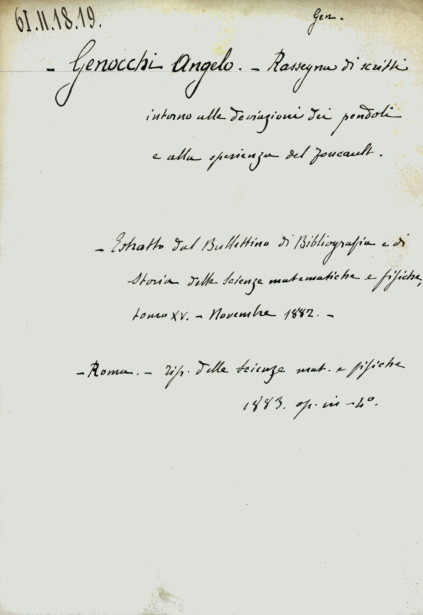 61.II.18.19.
Gen.
- Genocchi Angelo. - Rassegna di scritti
intorno alle deviazioni dei pendoli
e alla sperienza del Foucault.
- Estratto dal Bullettino di Bibliografia e di
Storia delle Scienze matematiche e fisiche,
tomo XV. - Novembre 1882. -
- Roma. - Tip. delle Scienze mat. e fisiche
1883. op. in -4º.